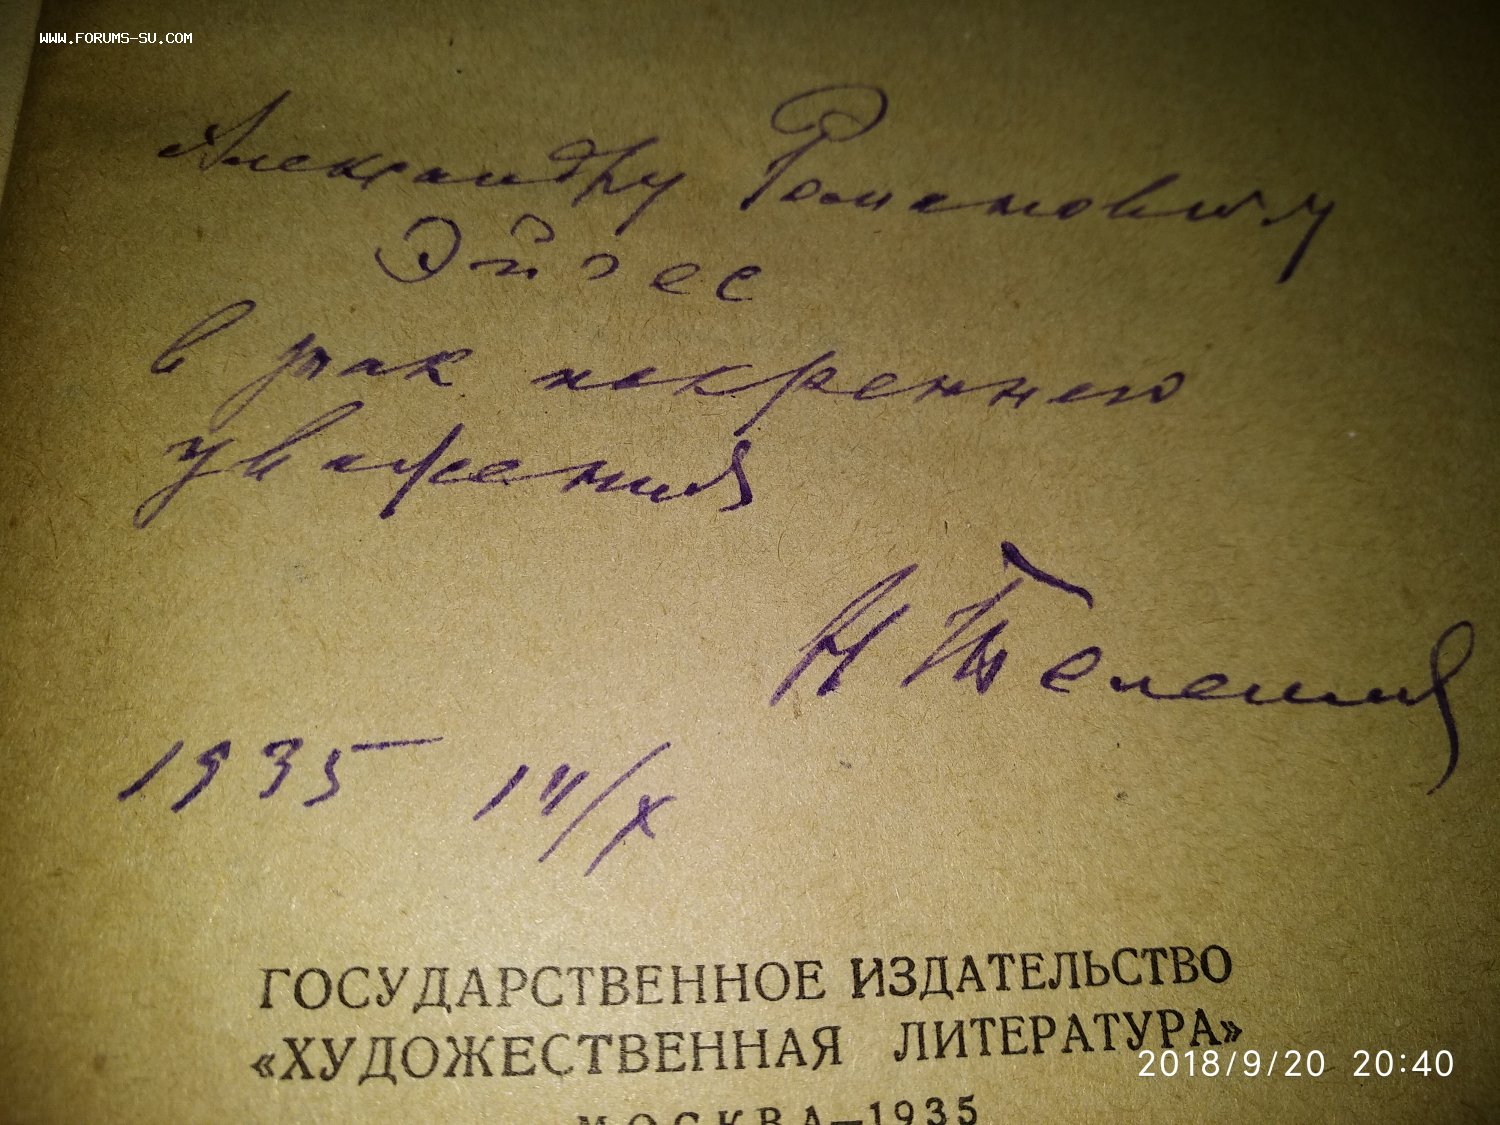 WWW.FORUMS-SU.COM
Александру Романовичу
Эйгес
в знак искреннего
уважения
Н Телешов
1935 14/X
ГОСУДАРСТВЕННОЕ ИЗДАТЕЛЬСТВО
«ХУДОЖЕСТВЕННАЯ ЛИТЕРАТУРА»
2018/9/20 20:40
МОСКВА—1935